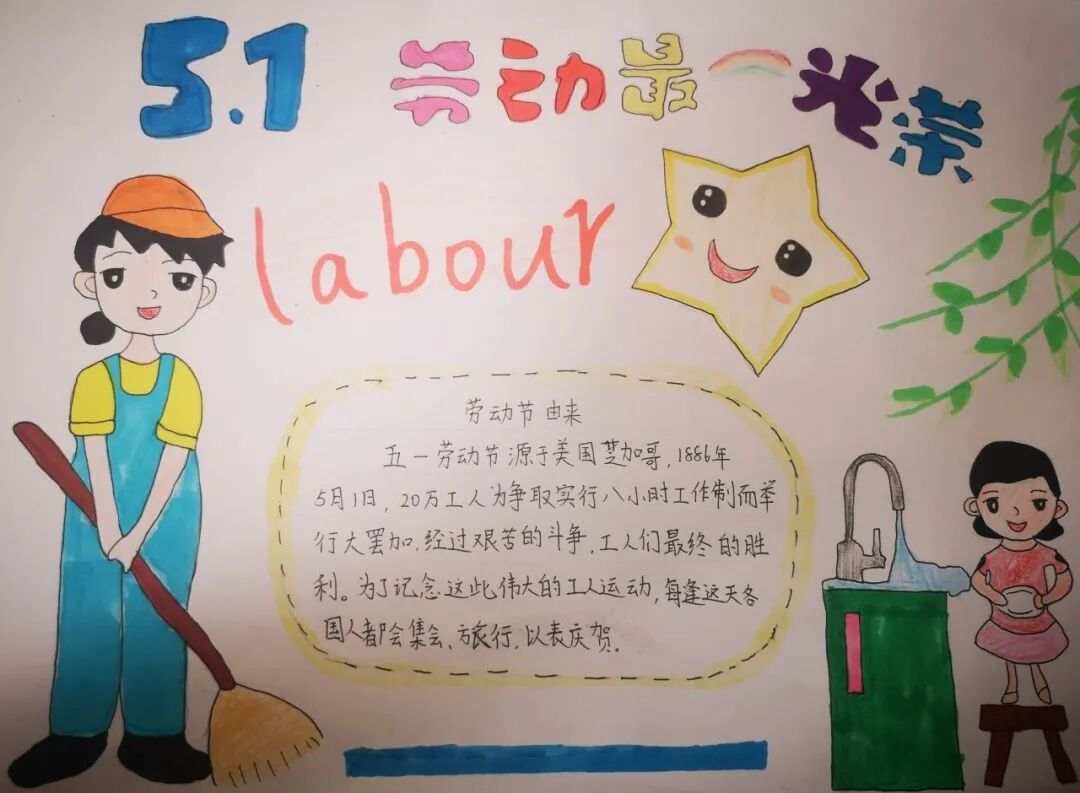 5.1 劳动最光荣
labour
劳动节由来
五一劳动节源于美国芝加哥,1886年
5月1日,20万工人为争取实行八小时工作制而举
行大罢加,经过艰苦的斗争,工人们最终的胜
利。为了记念这些伟大的工人运动,每逢这天各
国人都会集会、旅行,以表庆贺.